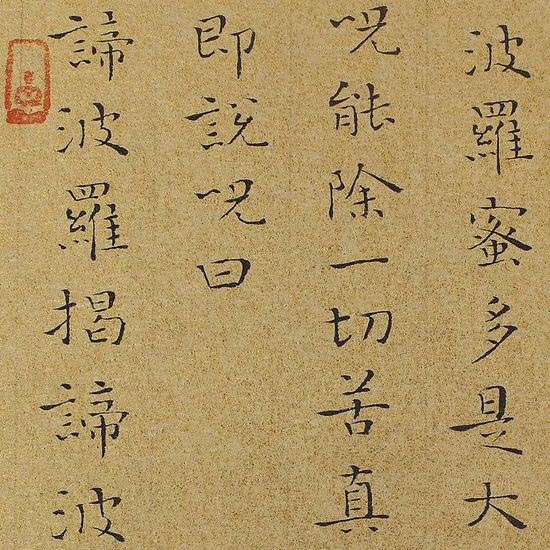 波羅蜜多是大
咒能除一切苦真
即說咒曰
諦波羅揭諦波